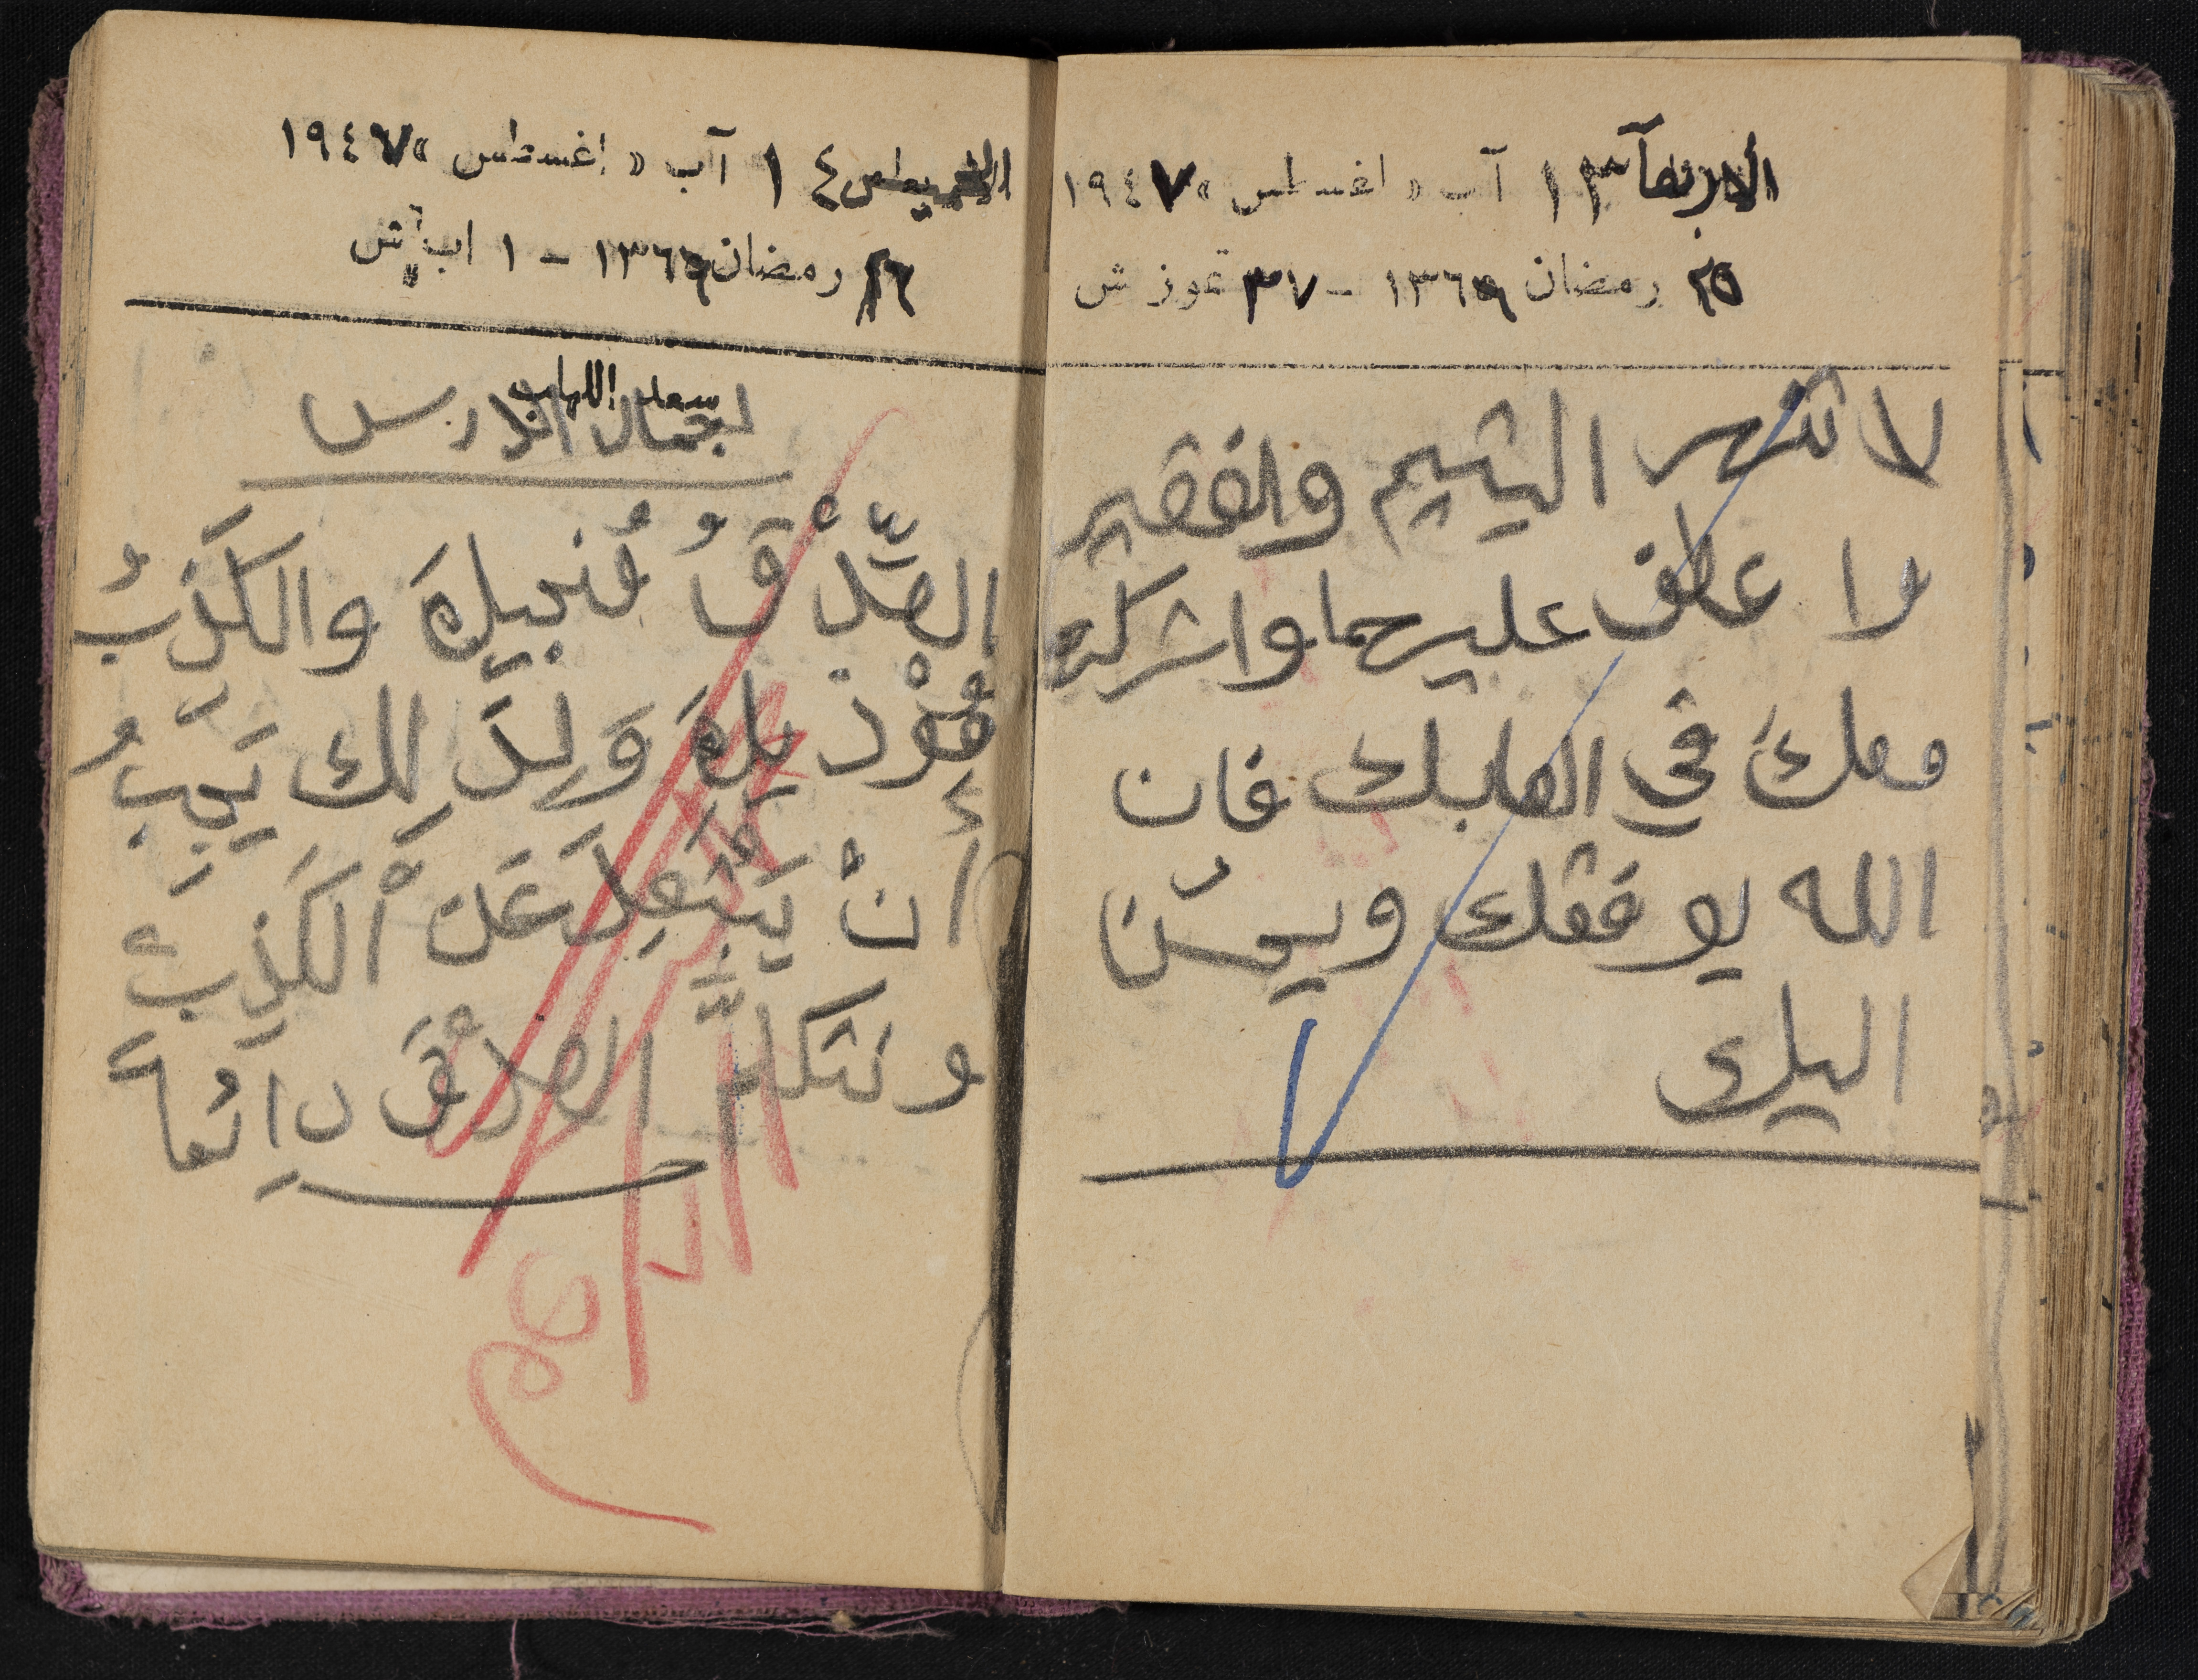 الأربعاء ١٣ آب « اغسطس » ١٩٤٧
٢٥ رمضان ١٣٦٩ - ٣٧ تموز ش
لا تنهر اليتيم والفقير
عطف عليهما واشركه
معك في العابك فان
الله يوفقك ويحسن
اليك
الخميس ١٤ آب « اغسطس » ١٩٤٧
٢٦ رمضان ١٣٦٩ - ١ اب ش
سعد اللهاب
اجمال الدارس
الصِّدْقُ فُنجيلَة والكَذِبُ
هُوْذ يلَة وَلِذَ لِك يَجِبُ
أَنْ يَبْتَعِدَ عَن الْكَذِبِ
و نتكلمَّ الصدْقَ دائماً